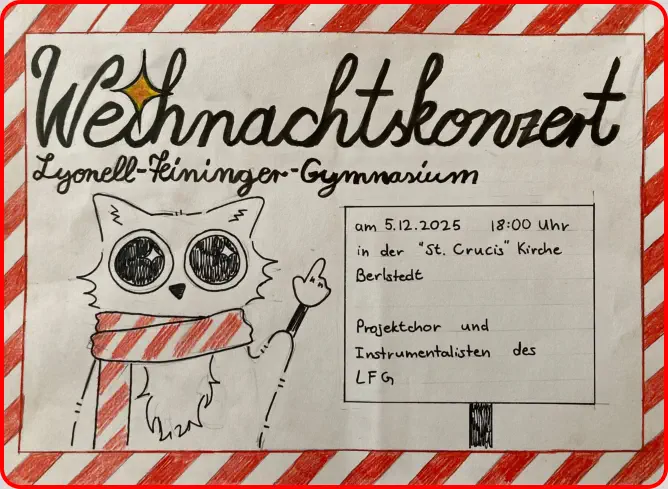 Weihnachtskonzert
Lyonell-Feininger-Gymnasium
am 5.12.2025 18:00 Uhr
in der "St. Crucis" Kirche
Berlstedt
Projektchor und
Instrumentalisten des
LFG